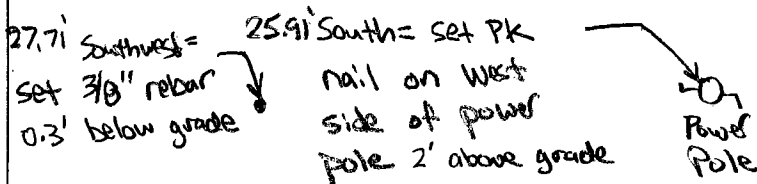 27.71' Southwest =
set 3/8" rebar
0.3' below grade
25.91' South = set PK
nail on west
side of power
pole 2' above grade
Power
Pole